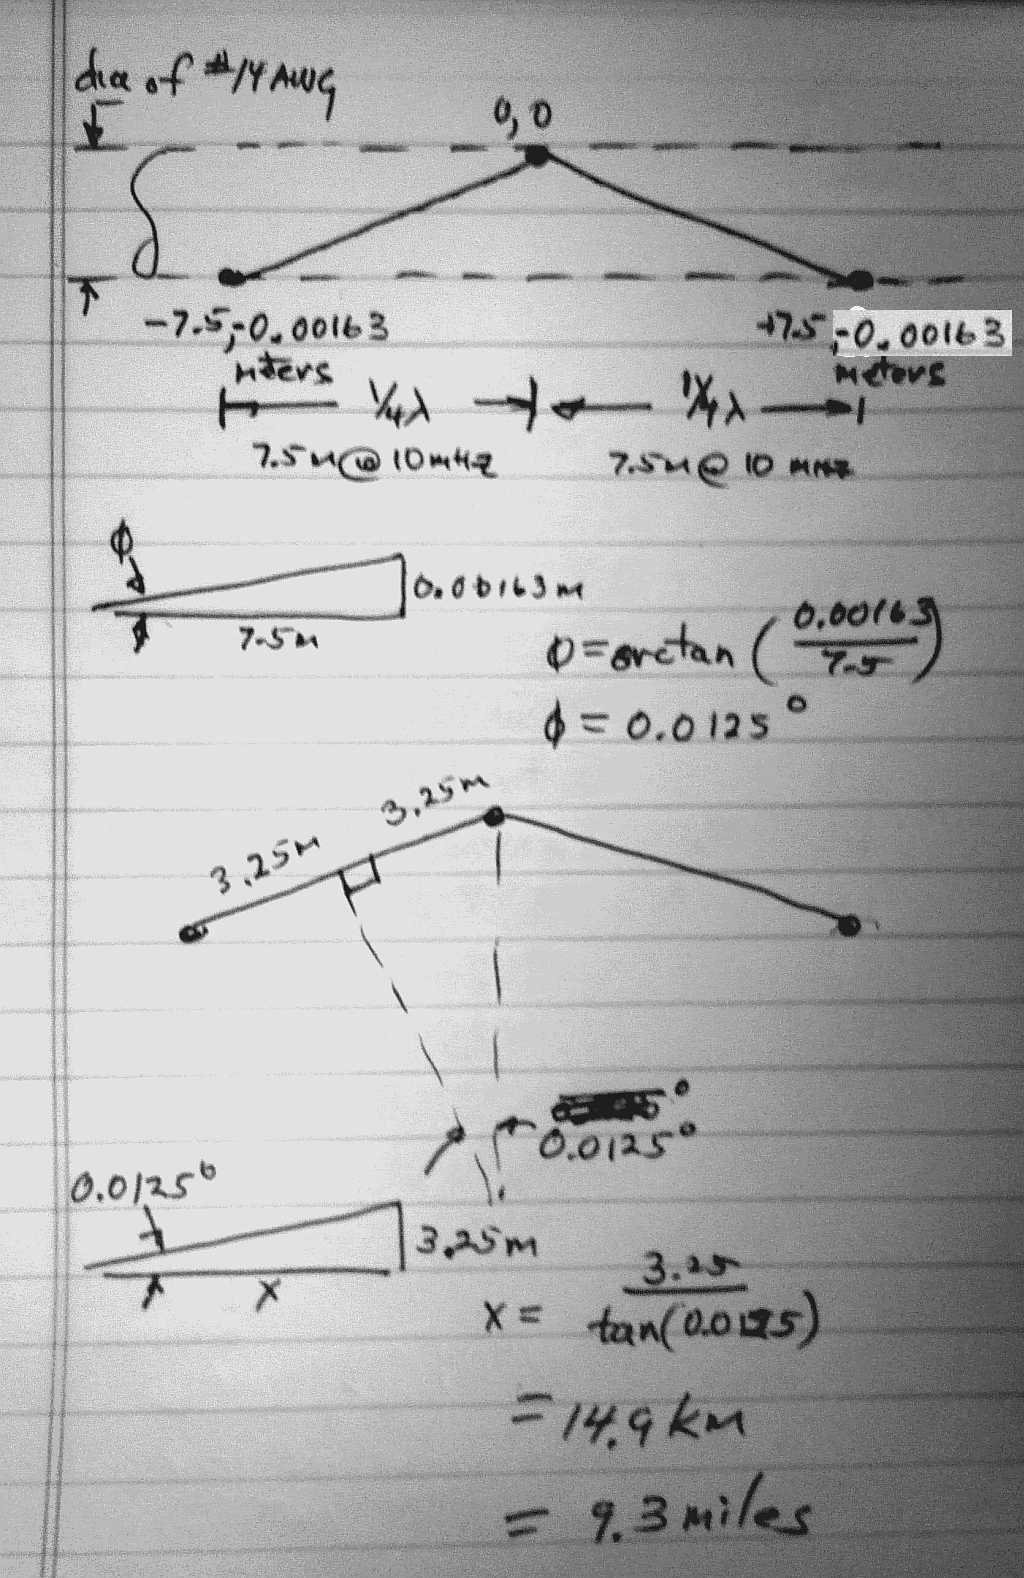 dia of #14 AWG
0, 0
-7.5, -0.00163
meters
+7.5, -0.00163
meters
1/4 λ
1/4 λ
7.5 M @ 10 MHz
7.5 M @ 10 MHz
ϕ
0.00163 m
7.5 m
ϕ = arctan (0.00163 / 7.5)
ϕ = 0.0125°
3.25 m
3.25 m
0.0125°
0.0125°
3.25 m
x
x = 3.25 / tan(0.0125)
= 14.9 km
= 9.3 miles